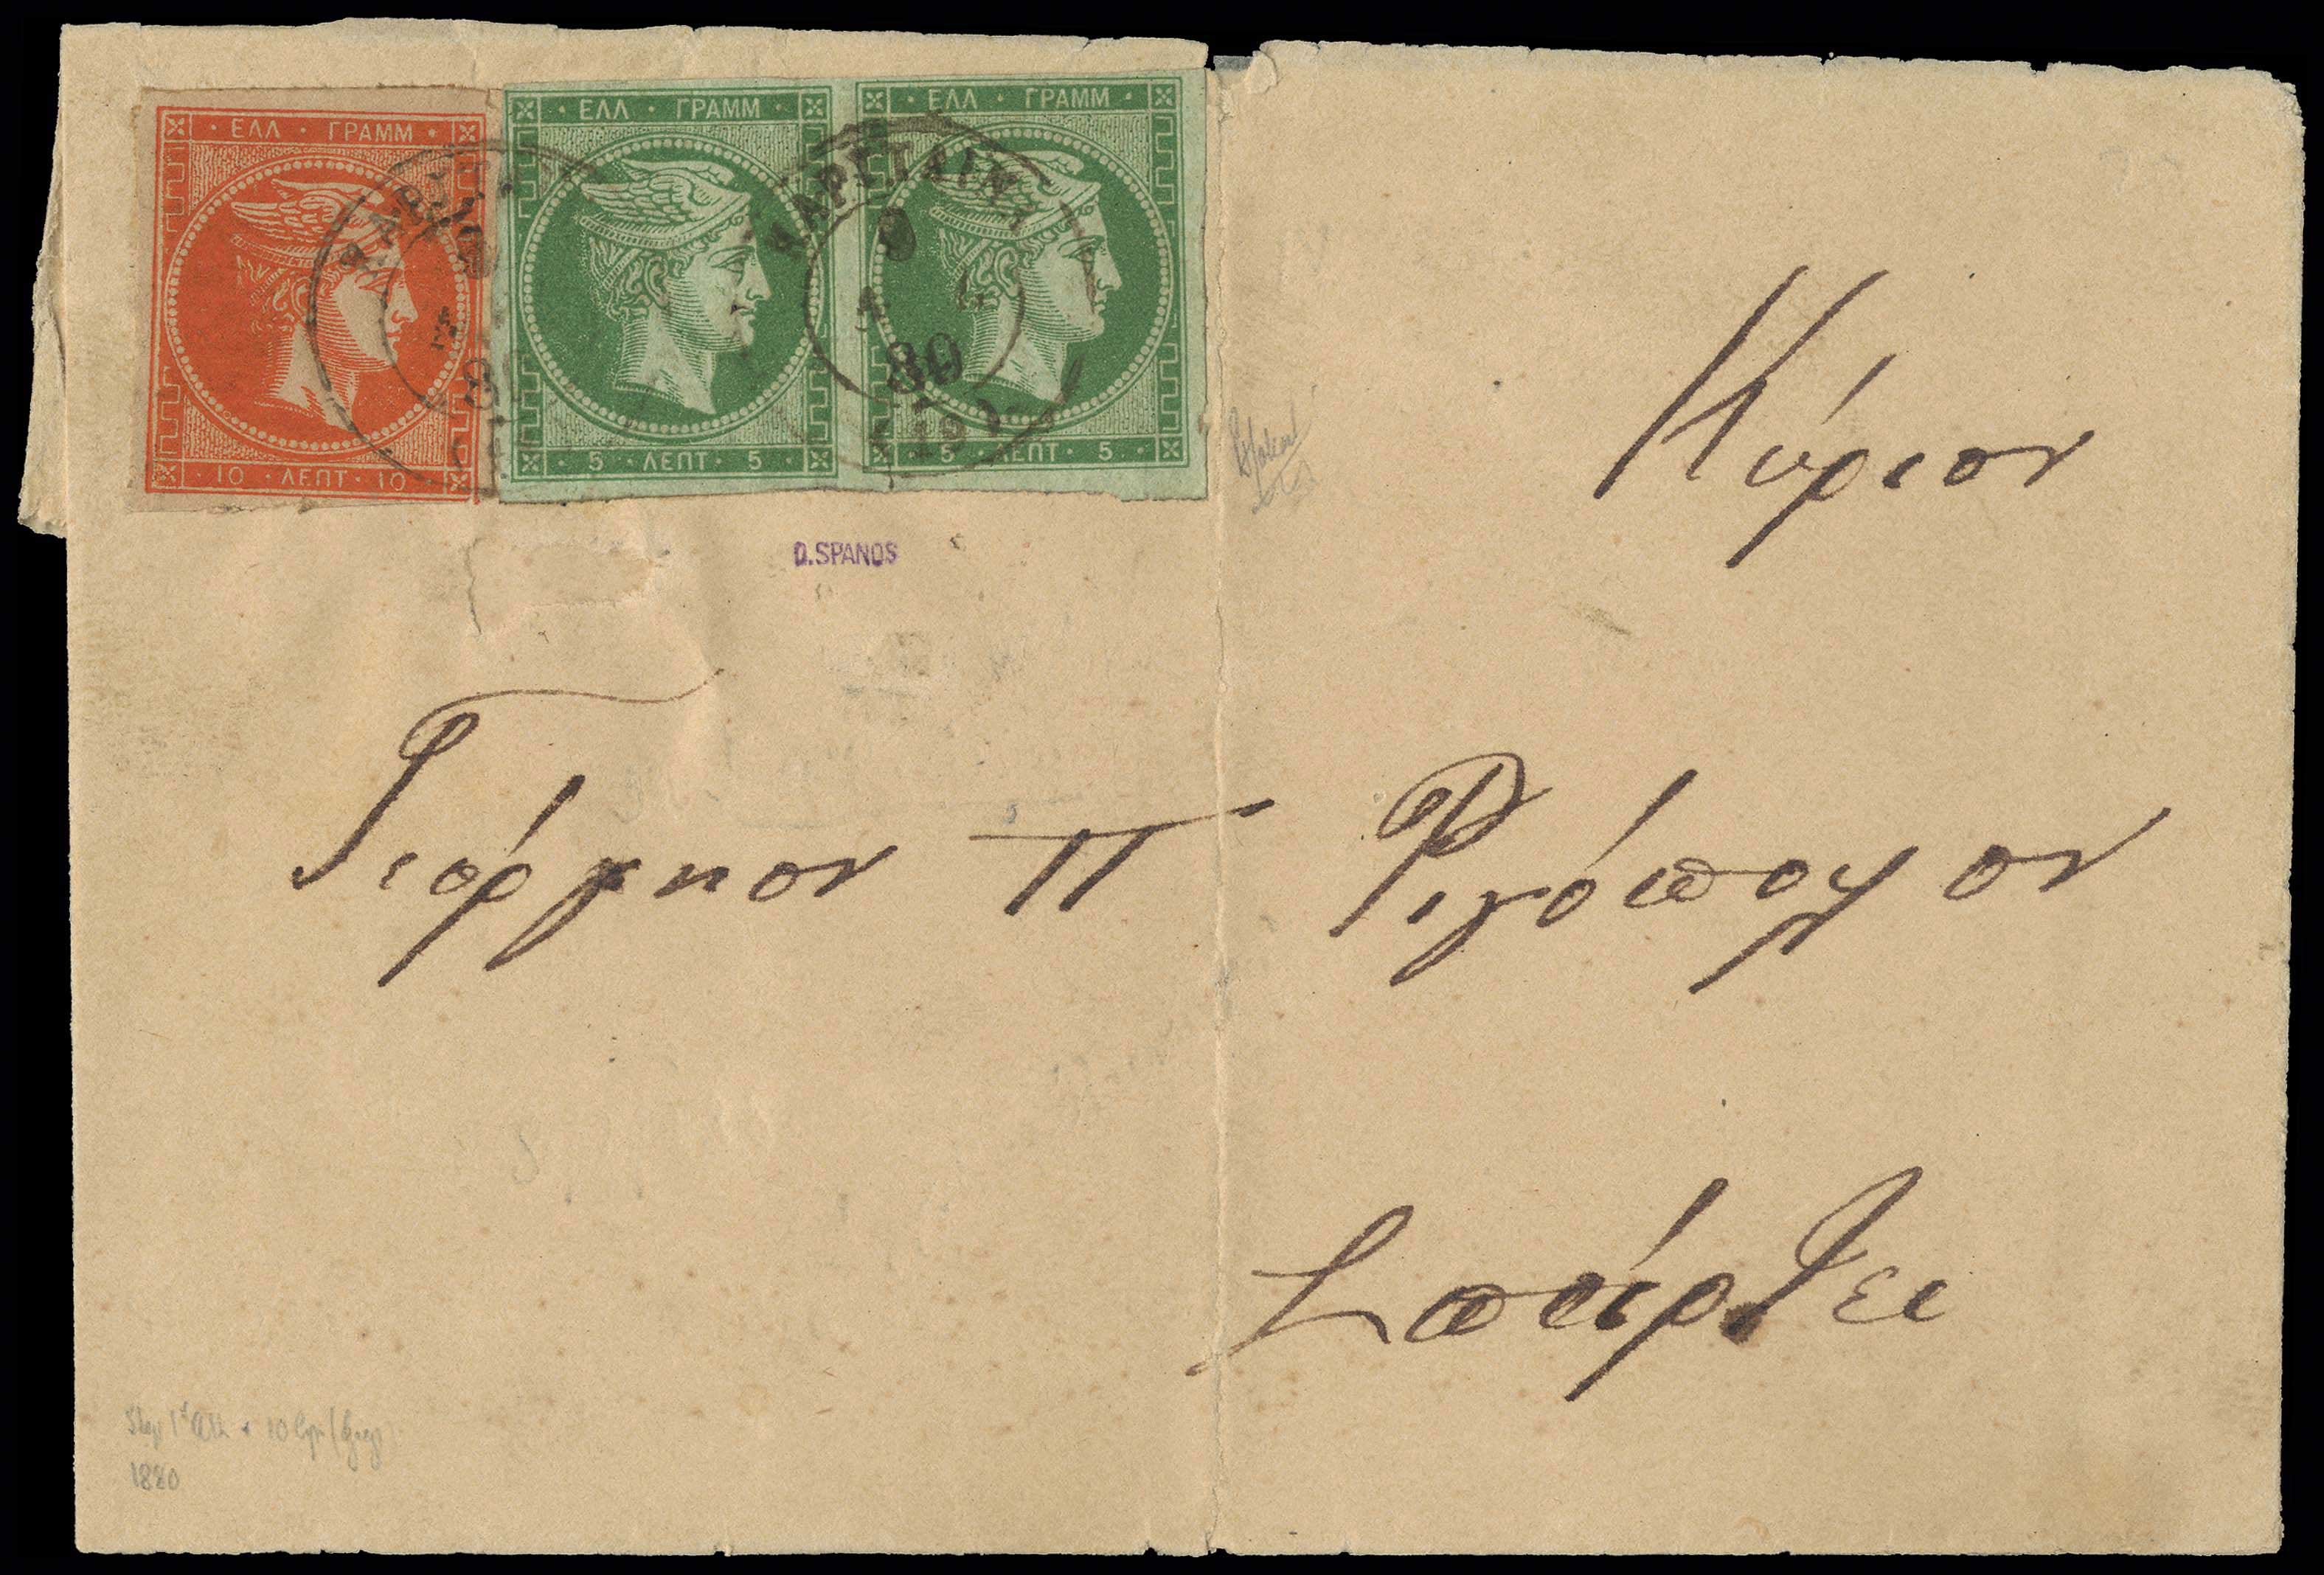 ΕΛΛ · ΓΡΑΜΜ
10 · ΛΕΠΤ · 10
ΕΛΛ · ΓΡΑΜΜ
5 · ΛΕΠΤ · 5
ΕΛΛ · ΓΡΑΜΜ
5 · ΛΕΠΤ · 5
9
80
D.SPANOS
Κύριον
Γεόργηον Π Ριζόπουλον
Σπάρτει
1880